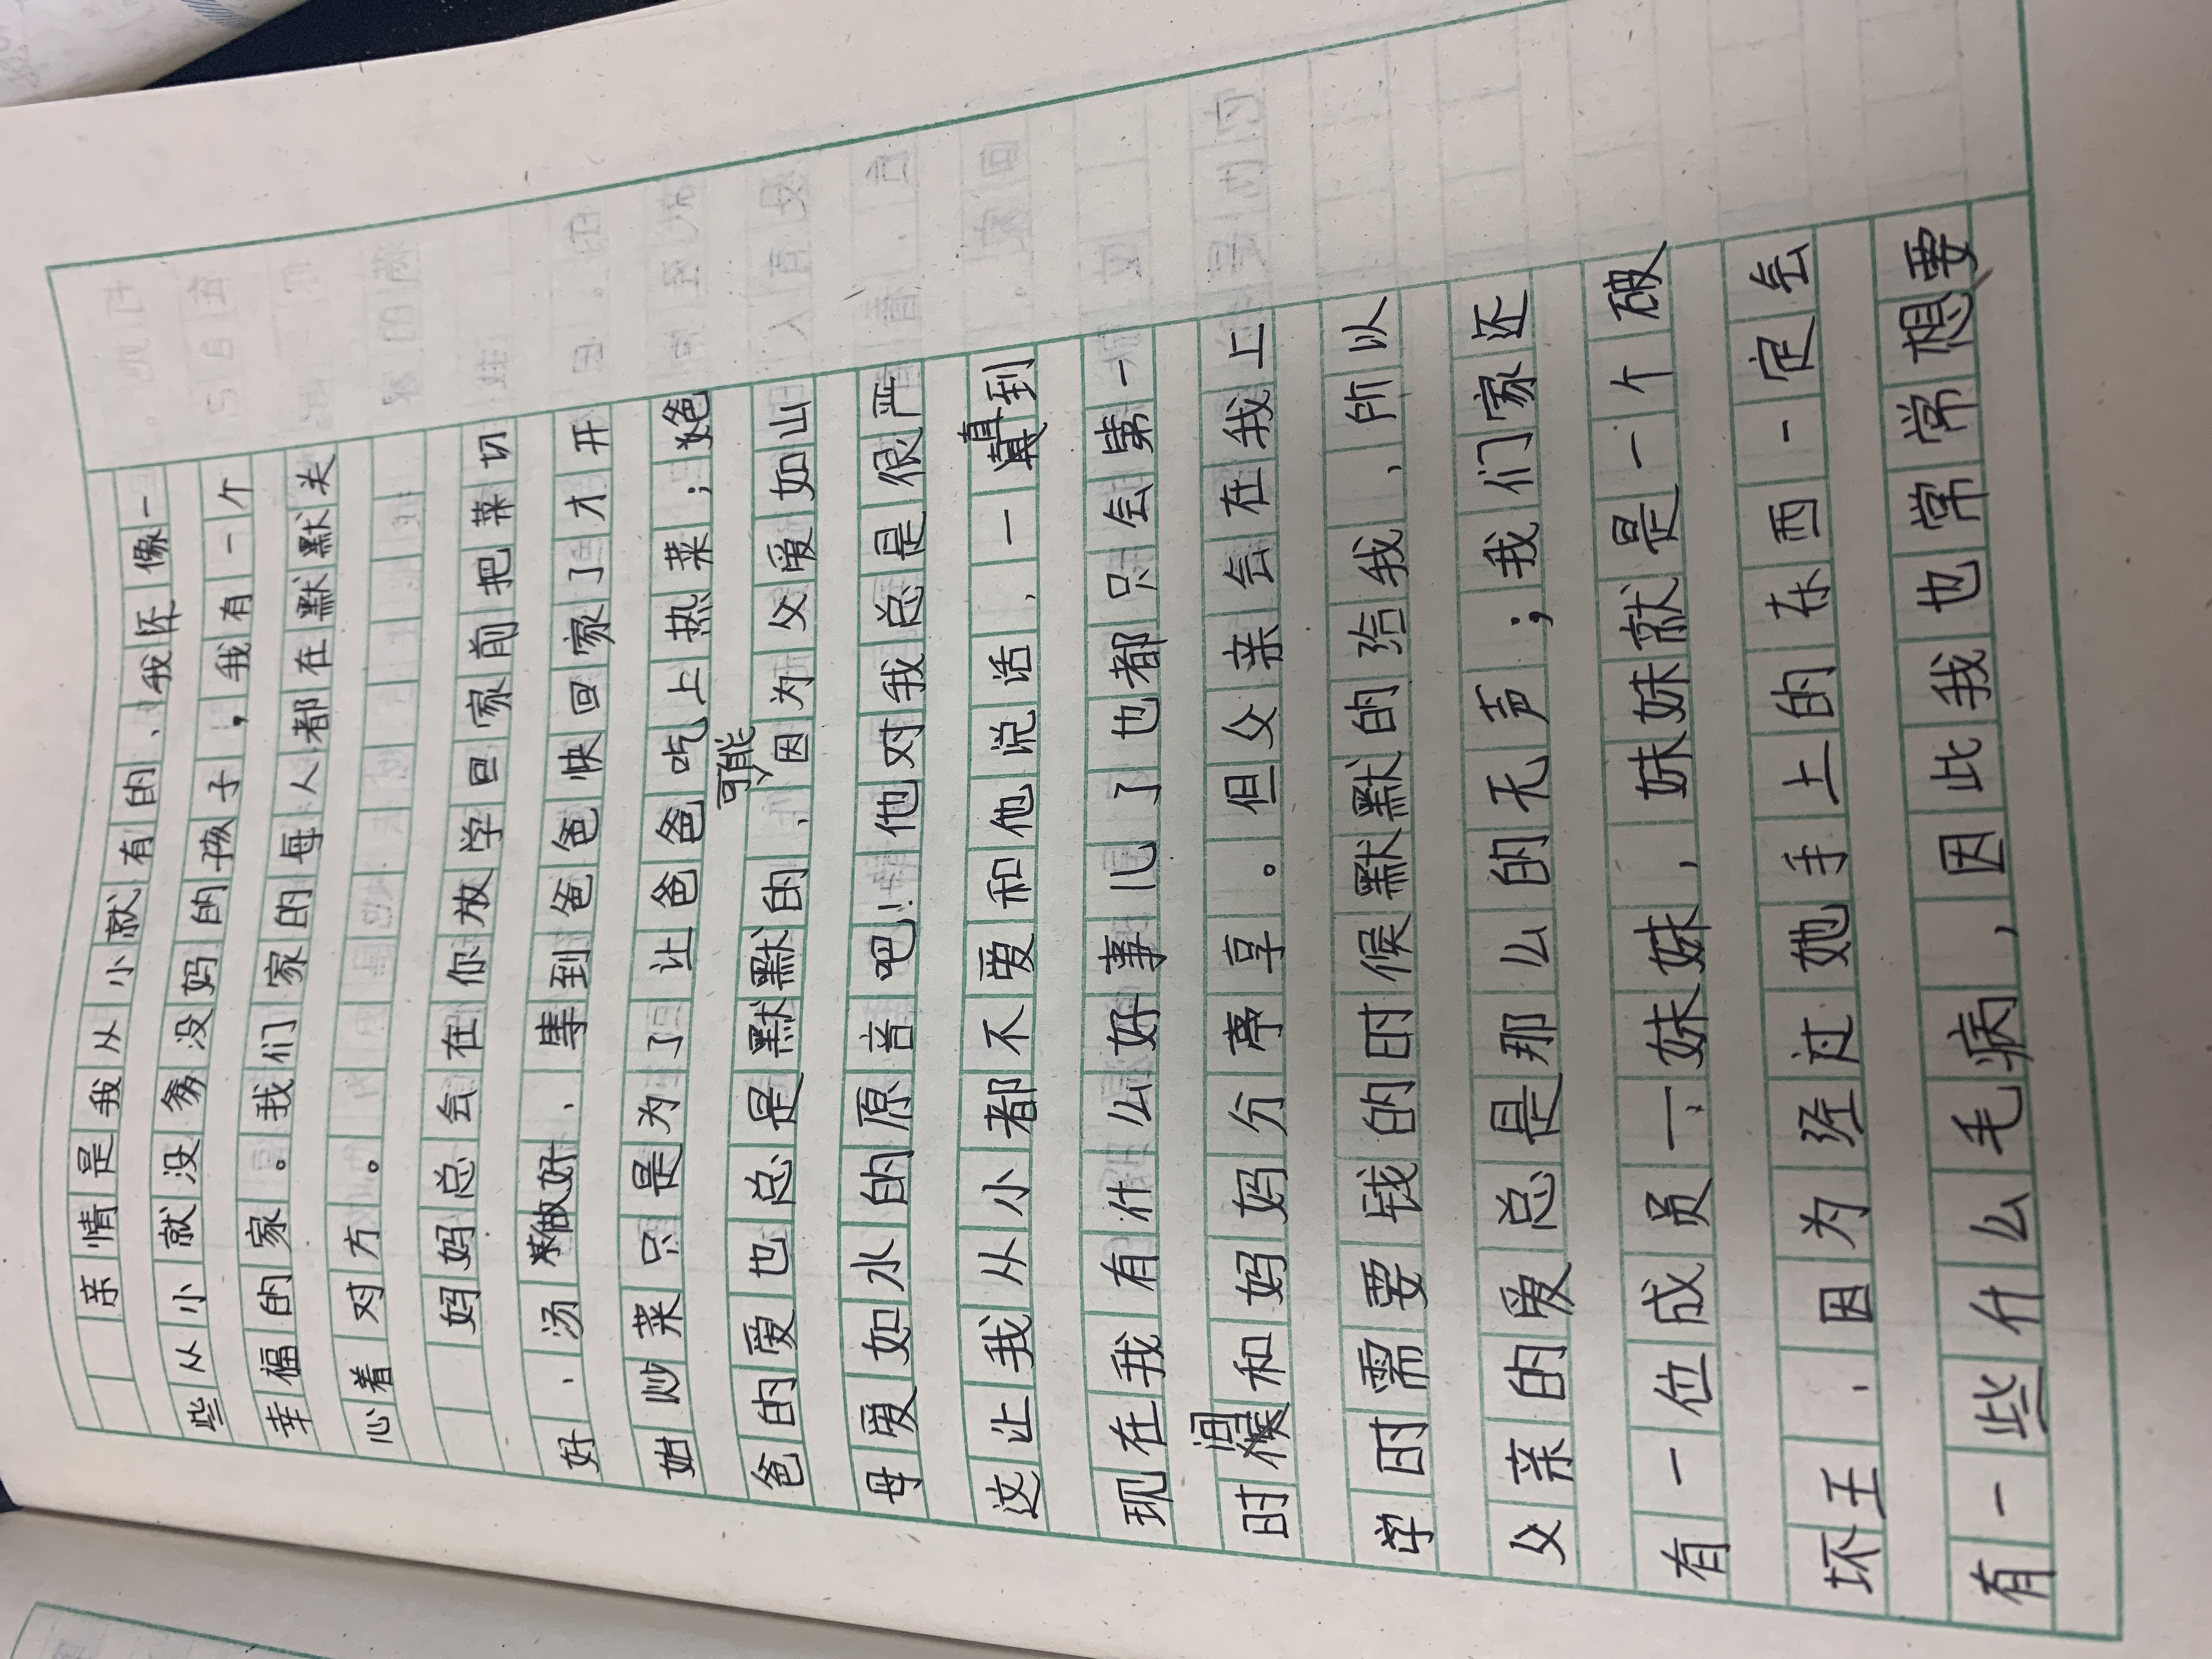 亲情是我从小就有的、我怀像一
些从小就没爹没妈的孩子，我有一个
幸福的家。我们家的每人都在默默关
心着对方。
妈妈总会在你放学回家前把菜切
好、汤做好、等到爸爸快回家了才开
始炒菜只是为了让爸爸吃上热菜；爸
爸的爱也总是默默的、可能因为父爱如山
母爱如水的原音吧！他对我总是很严
这让我从小都不爱和他说话、一直到
现在我有什么好事儿了也都只会第一
时间和妈妈分享。但父亲会在我上
学时需要钱的时候默默的给我、所以
父亲的爱总是那么的无声；我们家还
有一位成员——妹妹，妹妹就是一个破
坏王、因为经过她手上的东西一定会
有一些什么毛病，因此我也常常想要